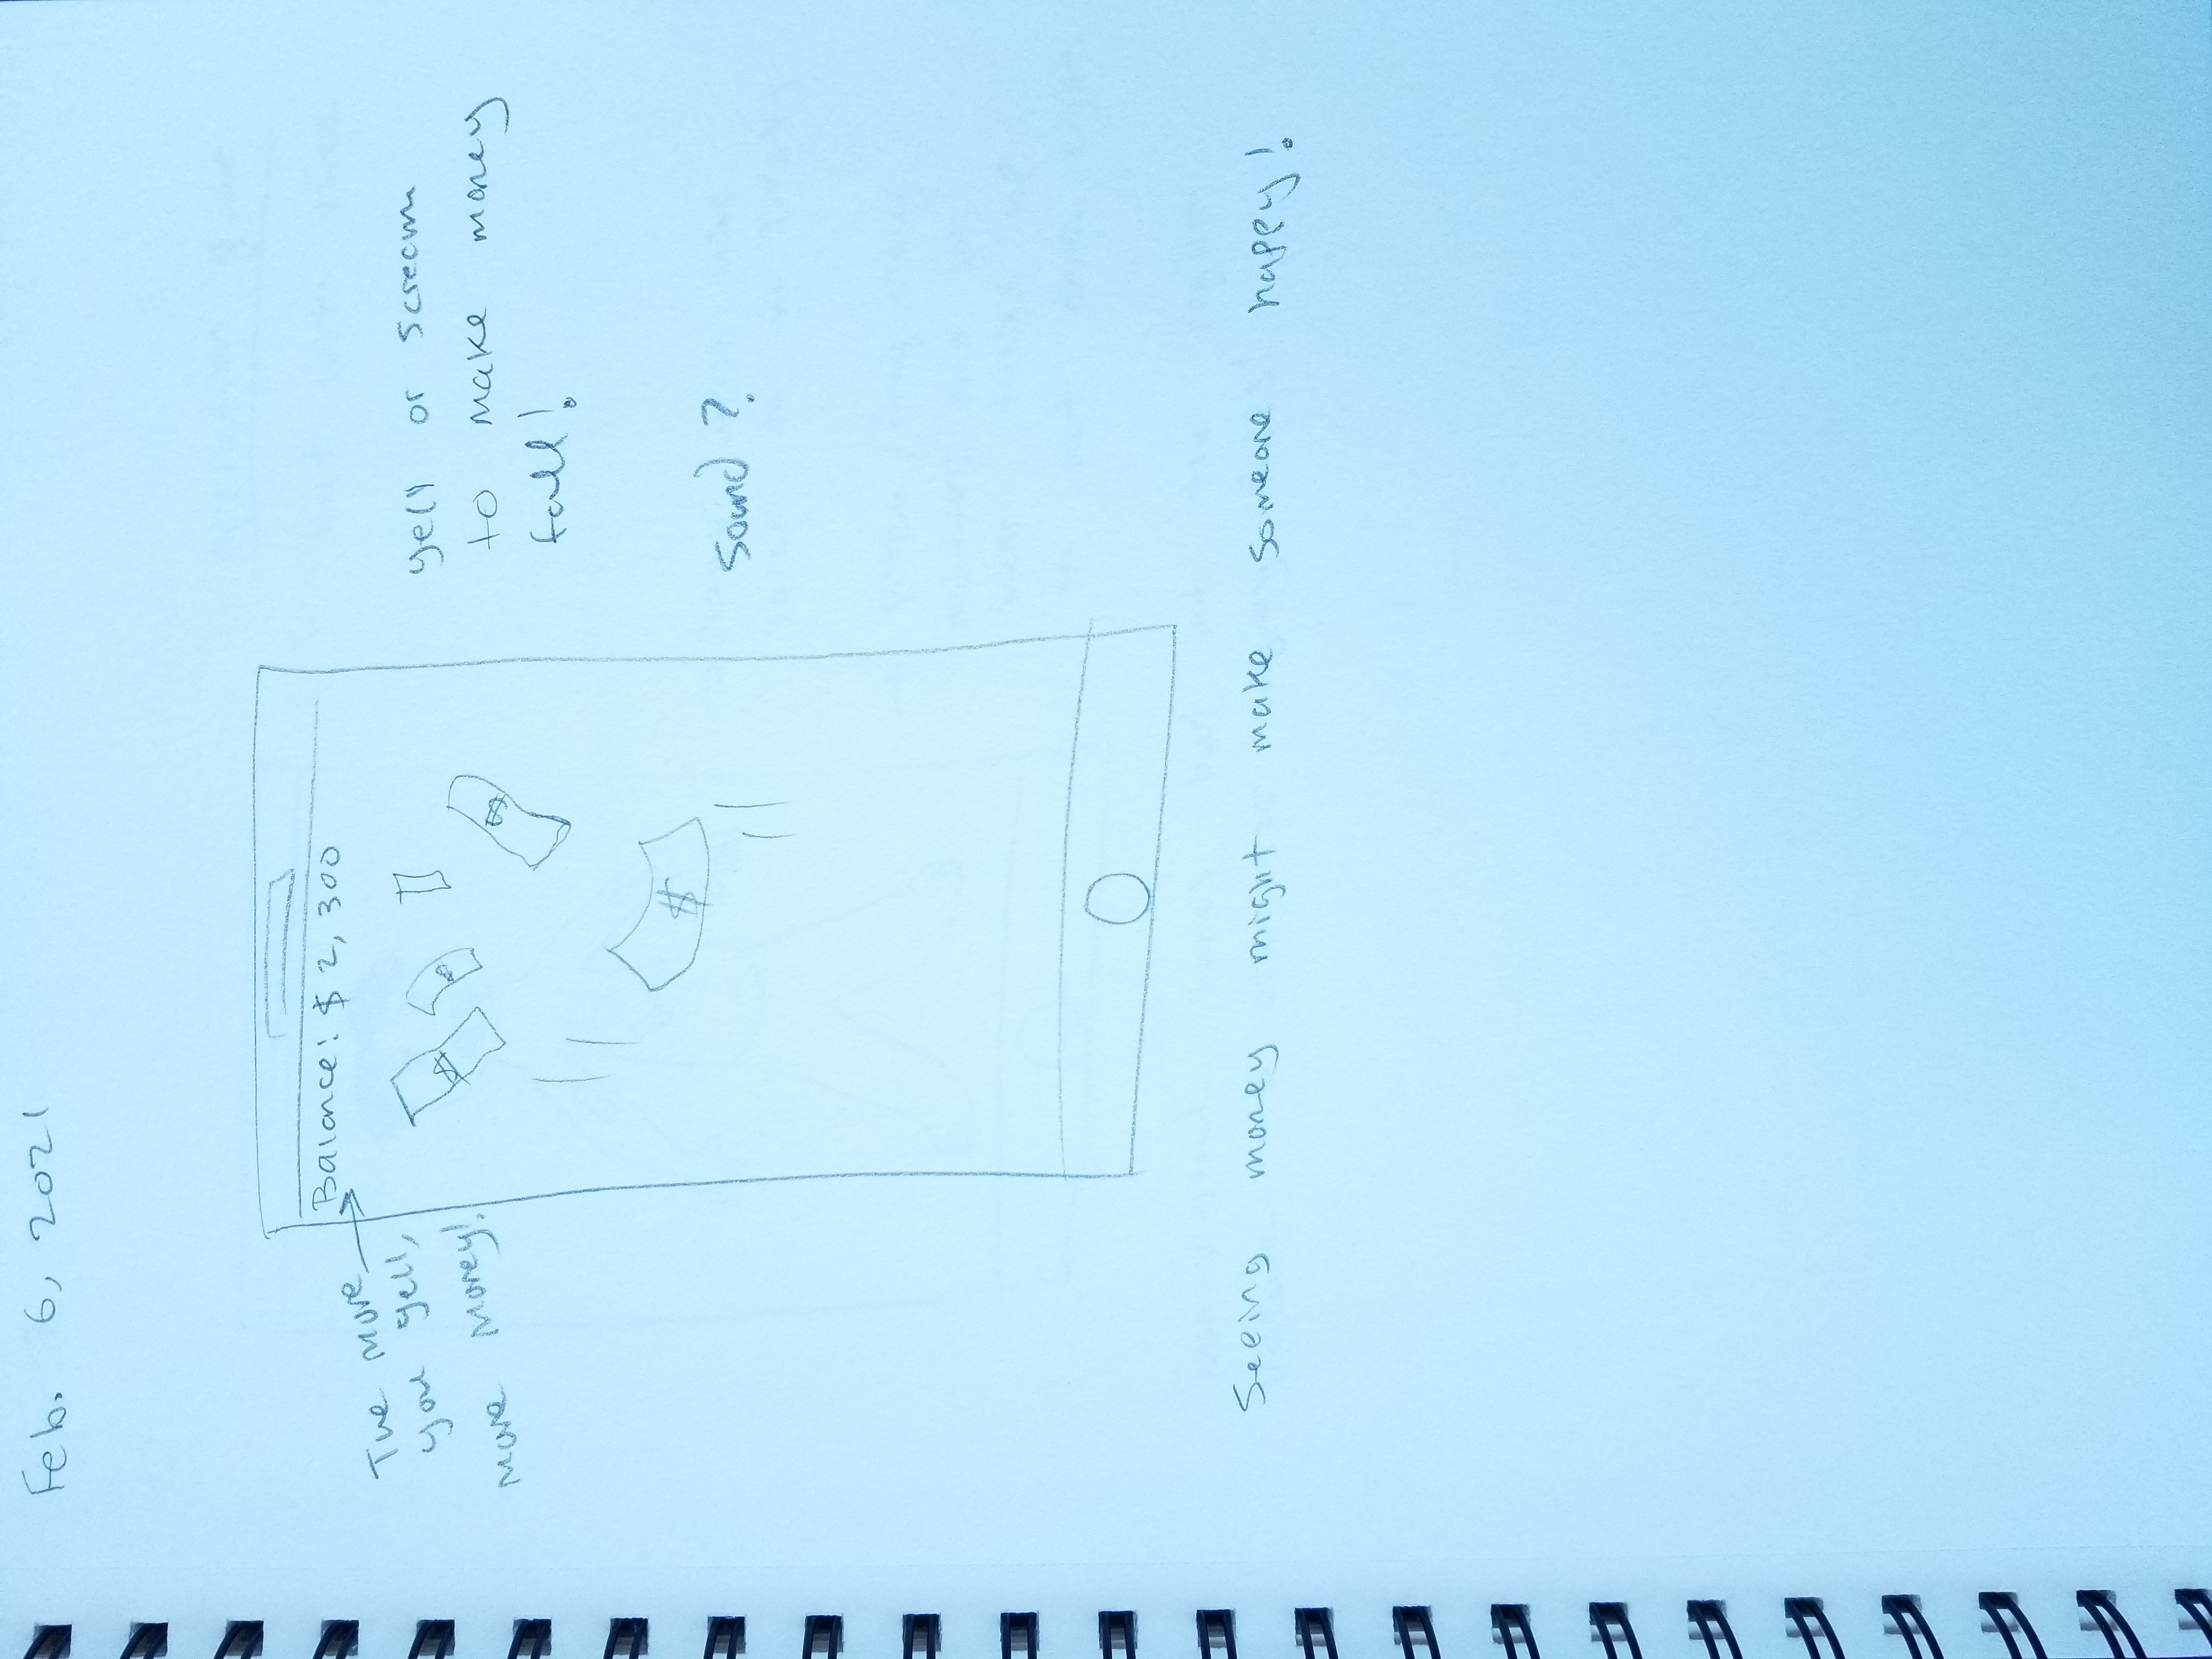 Feb. 6, 2021
Balance: $ 2, 300
The more
you yell,
more money!
yell or scream
to make money
fall!
$
Sound?
Seeing money might make someone happy!